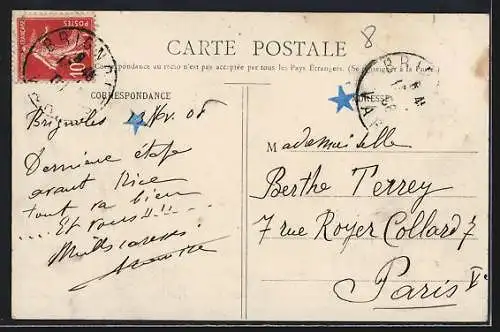 8
CARTE POSTALE
Correspondance au recto n'est pas acceptée par tous les Pays Étrangers. (Se renseigner à la Poste)
CORRESPONDANCE
ADRESSE
POSTES
10
BRIGNOLES
VAR
Brignoles Nov. 08
Dernière étape
avant Nice
tout va bien
.... Et vous !!!...
Mille caresses!
Mademoiselle
Berthe Terrey
7 rue Royer Collard 7
Paris Ve